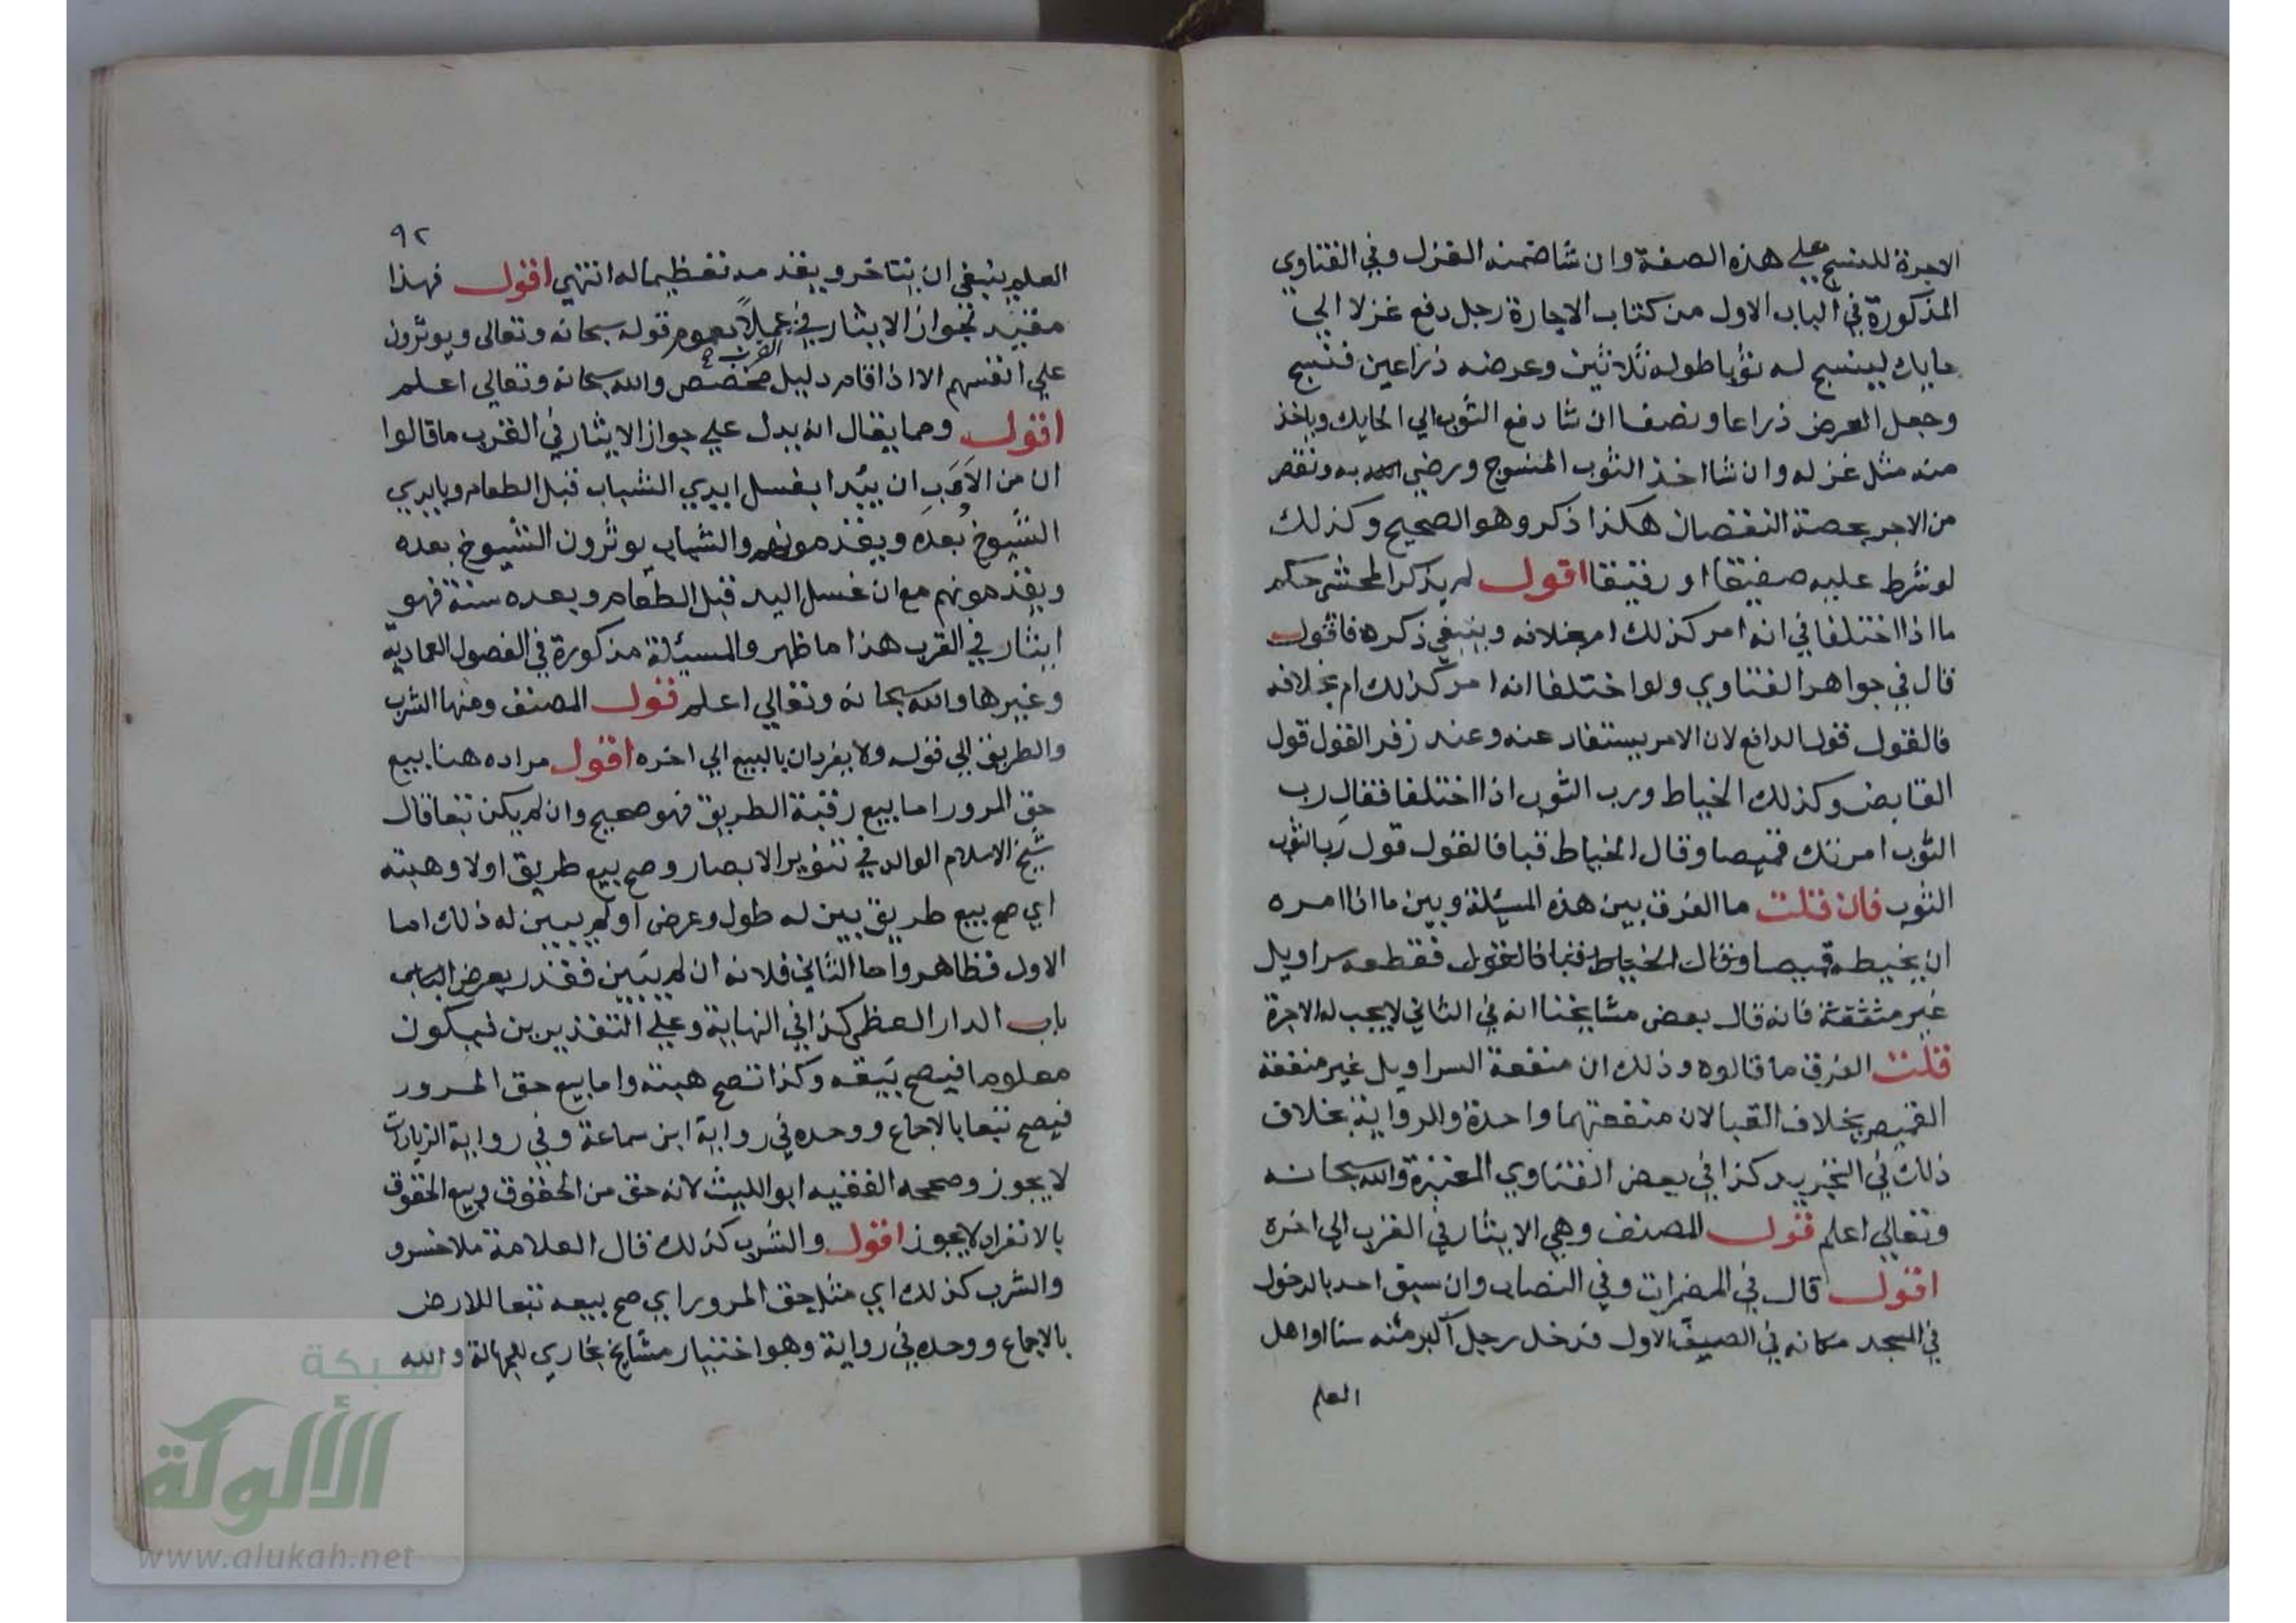 الاجرة للنسج علي هذه الصفة وان شا ضمنه الغزل وفي الفتاوي
المذكورة في الباب الاول من كتاب الاجارة رجل دفع غزلا الي
حايك لينسج له ثوبا طوله ثلاثين وعرضه ذراعين فنسج
وجعل العرض ذراعا ونصفا ان شا دفع الثوب الي الحايك وياخذ
منه مثل غزله وان شا اخذ الثوب المنسوج ورضي به ونقص
من الاجر بحصة النقصان هكذا ذكر وهو الصحيح وكذلك
لو شرط عليه صفيقا او رقيقا اقول لم يذكر المحشي حكم
ما اذا اختلفا في انه امر كذلك ام بخلافه وينبغي ذكره فاقول
قال في جواهر الفتاوي ولو اختلفا انه امر كذلك ام بخلافه
فالقول قول الدافع لان الامر يستفاد عنه وعند زفر القول قول
القابض وكذلك الخياط ورب الثوب اذا اختلفا فقال رب
الثوب امرتك قميصا وقال الخياط قبا فالقول قول رب الثوب
الثوب فان قلت ما الفرق بين هذه المسئلة وبين ما اذا امره
ان يخيطه قميصا وقال الخياط قبا فالقول فقطعه سراويل
غير متفقة فانه قال بعض مشايخنا انه في الثاني لا يجب له الاجرة
قلت الفرق ما قالوه وذلك ان منفعة السراويل غير منفعة
القميص بخلاف القبا لان منفعتهما واحدة والرواية بخلاف
ذلك في التجريد كذا في بعض الفتاوي المعتبرة والله سبحانه
وتعالي اعلم قول المصنف وهي الايثار في القرب الي اخره
اقول قال في المضمرات وفي النصاب وان سبق احد بالدخول
في المسجد مكانه في الصف الاول فدخل رجل اكبر منه سنا او اهل
العلم
٩٢
العلم ينبغي ان يتاخر ويقدمه تعظيما له انتهي اقول فهذا
مفيد لجواز الايثار في القرب عملا بعموم قوله سبحانه وتعالى ويوثرون
علي انفسهم الا اذا قام دليل مخصص والله سبحانه وتعالي اعلم
اقول ومما يقال انه يدل علي جواز الايثار في القرب ما قالوا
ان من الادب ان يبدا بغسل ايدي الشباب قبل الطعام وبايدي
الشيوخ بعده ويقدمونهم والشباب يوثرون الشيوخ بعده
ويقدمونهم مع ان غسل اليد قبل الطعام وبعده سنة فهو
ايثار في القرب هذا ما ظهر والمسئلة مذكورة في الفصول العمادية
وغيرها والله سبحانه وتعالي اعلم قول المصنف ومنها الشرب
والطريق الي قوله ولا يفردان بالبيع الي اخره اقول مراده هنا بيع
حق المرور اما بيع رقبة الطريق فهو صحيح وان لم يكن تبعا قال
شيخ الاسلام الوالد في تنوير الابصار وصح بيع طريق اولا وهبته
اي صح بيع طريق بين له طول وعرض او لم يبين له ذلك اما
الاول فظاهر واما الثاني فلانه ان لم يبين فقدر بعرض الباب
باب الدار العظمى كذا في النهاية وعلي التقديرين فيكون
معلوما فيصح بيعه وكذا تصح هبته واما بيع حق المرور
فيصح تبعا بالاجماع ووحده في رواية ابن سماعة وفي رواية الزيادات
لا يجوز وصححه الفقيه ابو الليث لانه حق من الحقوق وبيع الحقوق
بالانفراد لا يجوز اقول والشرب كذلك قال العلامة ملا خسرو
والشرب كذلك اي مثل حق المرور اي صح بيعه تبعا للارض
بالاجماع ووحده في رواية وهو اختيار مشايخ بخاري للجهالة والله
شبكة
الألوكة
www.alukah.net